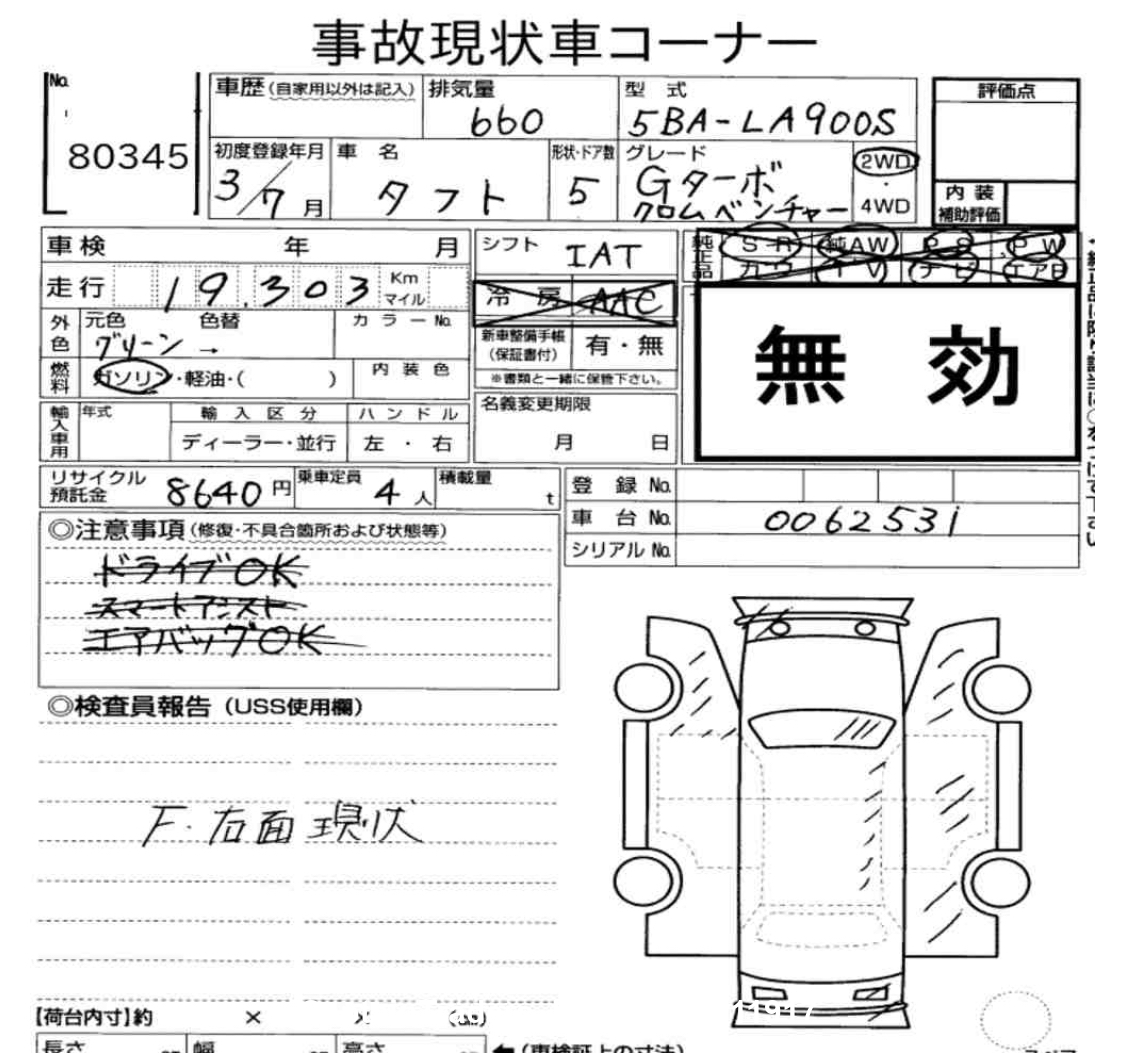 事故現状車コーナー
No.
80345
車歴(自家用以外は記入)
排気量
660
型 式
5BA-LA900S
評価点
初度登録年月
3/7月
車 名
タフト
形状・ドア数
5
グレード
Gターボ
クロムベンチャー
2WD
・
4WD
内 装
補助評価
車検 年 月
シフト
IAT
純正品
S R
純AW
P S
P W
カワ
T V
ナビ
エアB
走行
19.303
Km
マイル
冷 房
AAC
外色
元色 色替
グリーン →
カラーNo.
新車整備手帳
(保証書付)
有・無
※書類と一緒に保管下さい。
無 効
燃料
ガソリン・軽油・( )
内装色
輸入車用
年式
輸入区分
ディーラー・並行
ハンドル
左・右
名義変更期限
月 日
リサイクル
預託金
8640円
乗車定員
4人
積載量
t
登 録 No.
車 台 No.
0062531
シリアル No.
◎注意事項(修復・不具合箇所および状態等)
ドライブOK
スマートアシスト
エアバッグOK
◎検査員報告(USS使用欄)
F・右面 現状
【荷台内寸】約 × ×
長さ
幅
高さ
(車検証上の寸法)